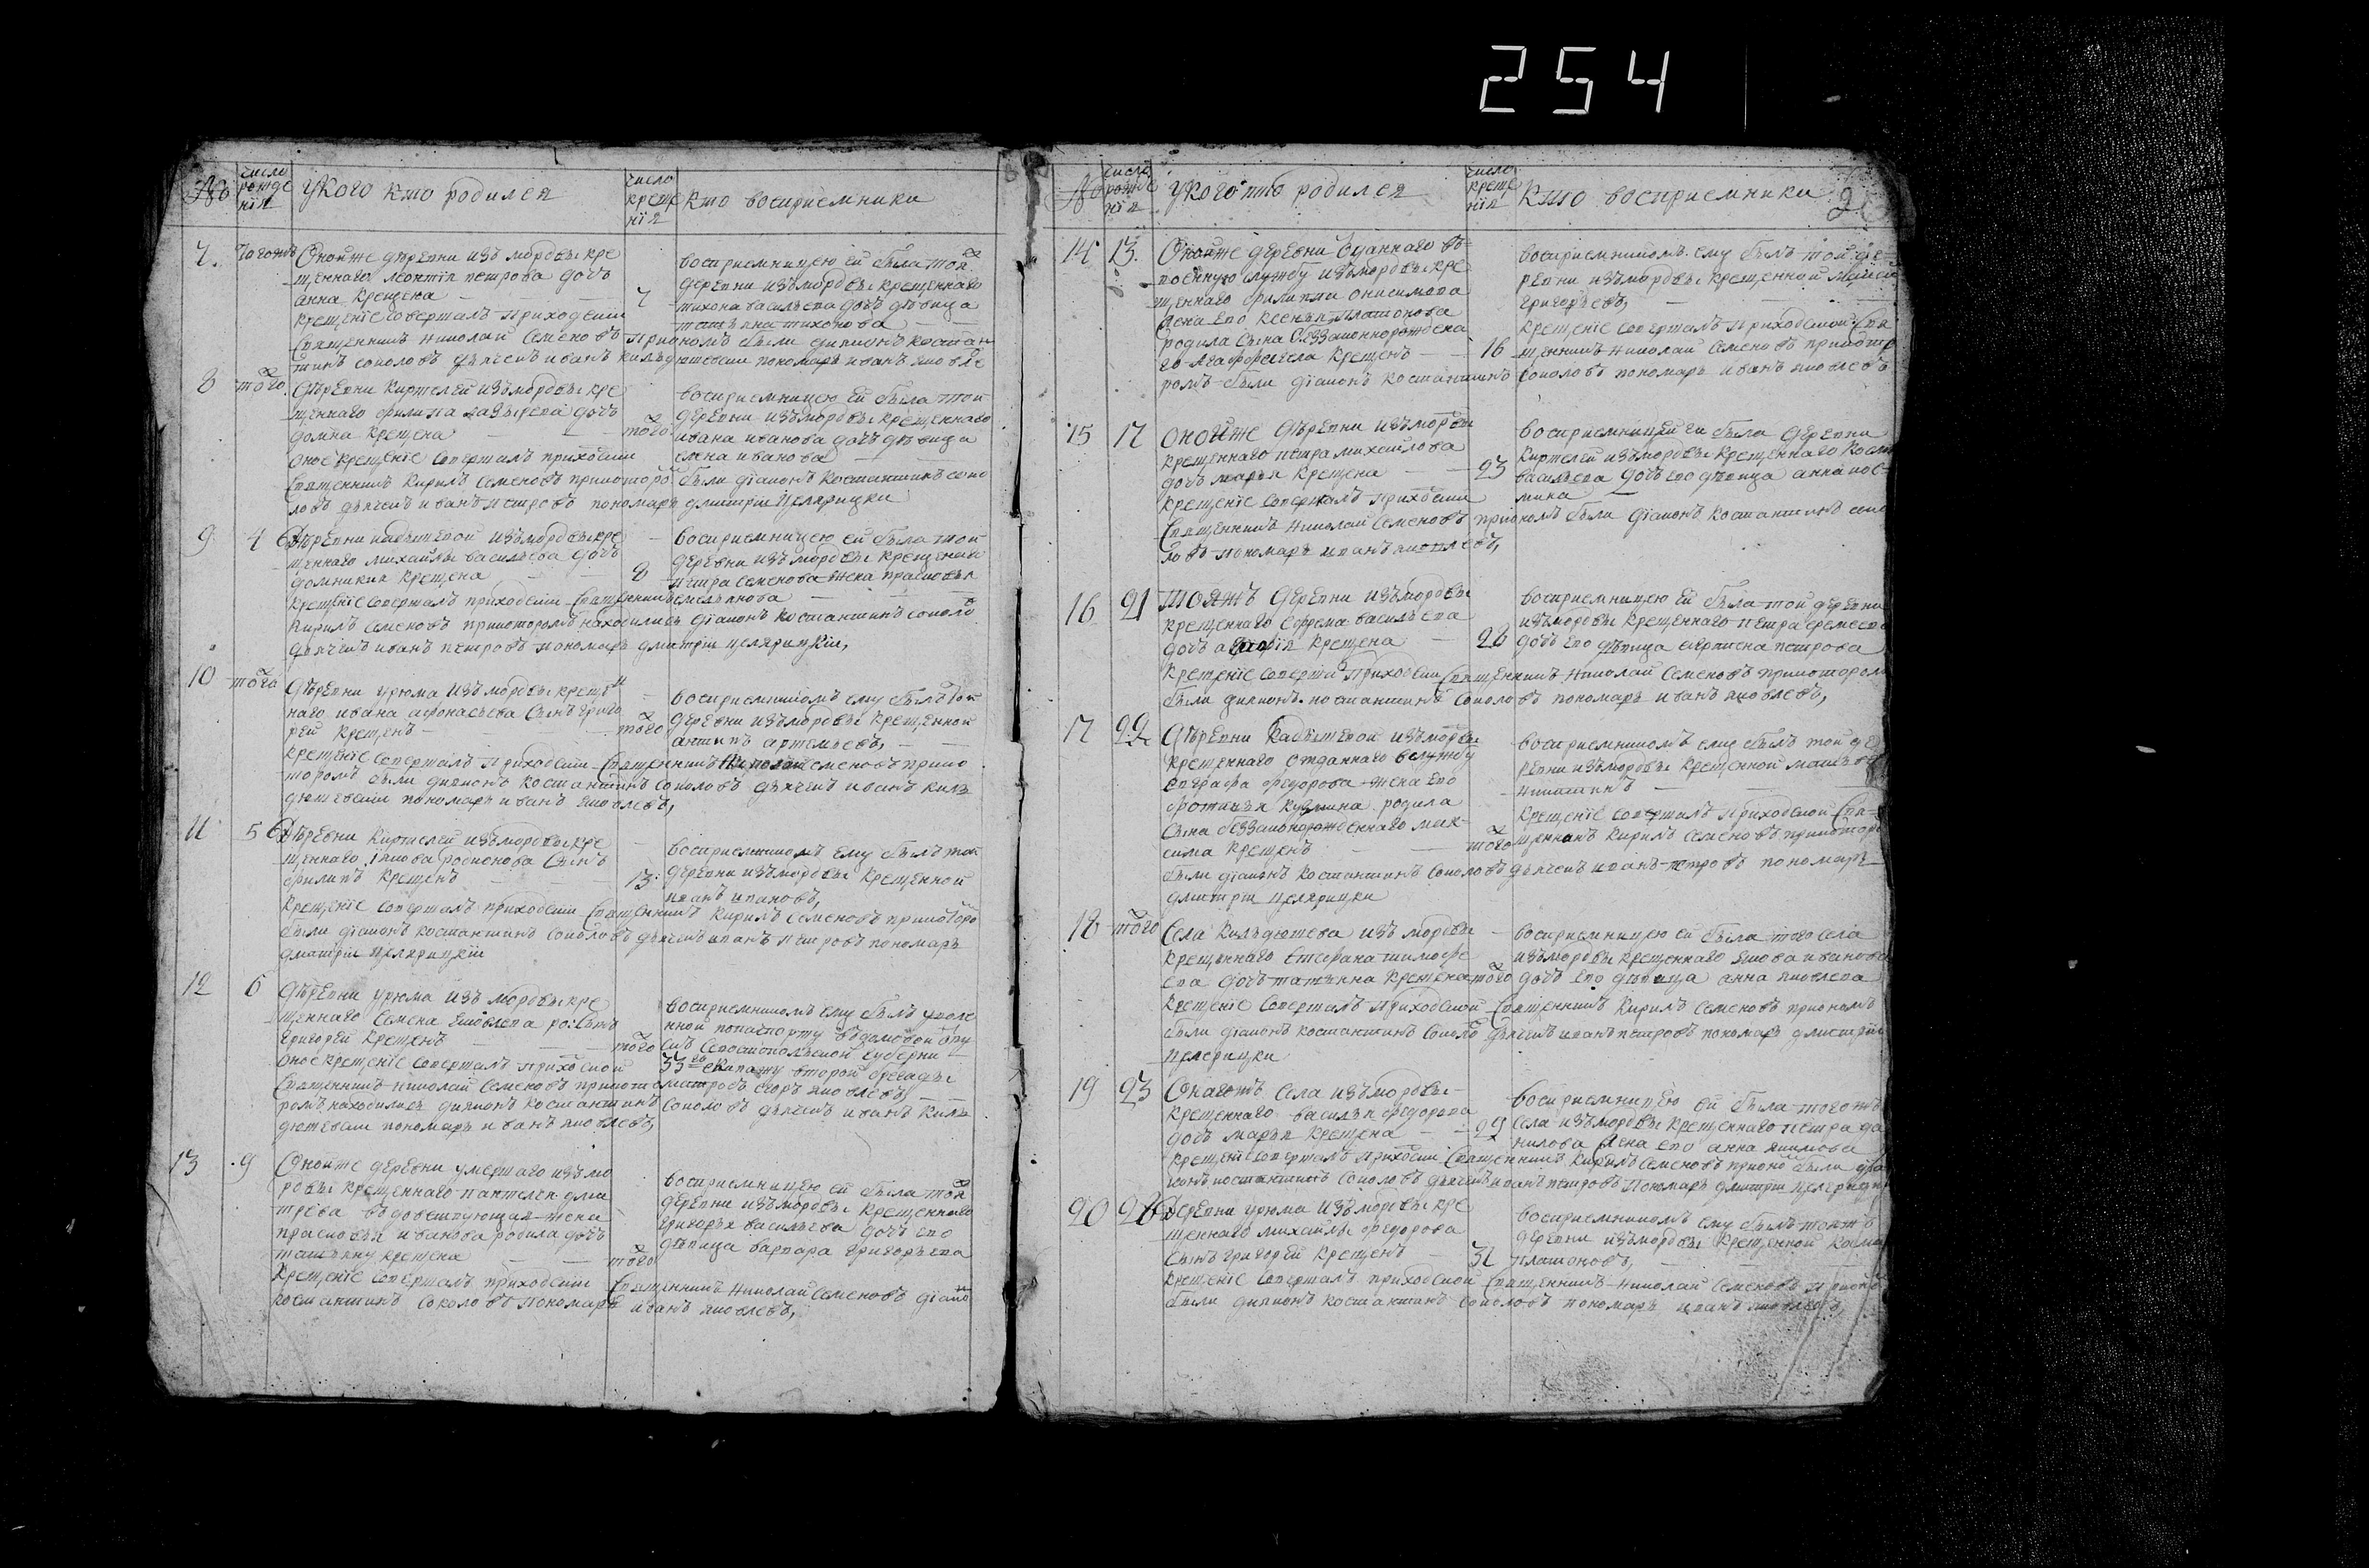 254
№ число рожденія У кого кто родился число крещенія кто восприемники
7. Тогожъ Оной же деревни изъ мордвы кре
щеннаго леонтія петрова дочь
анна крещена
крещеніе совершалъ приходскій
священникъ николай семеновъ при ономъ были діаконъ костан
тинъ соколовъ дьячекъ иванъ кильдюшевскій пономарь иванъ яковле
7
восприемницею ей была той
деревни изъ мордвы крещеннаго
тихона васильева дочь девица
татьяна тихонова
8 того Деревни Киртелей изъ мордвы кре
щеннаго филипа дочь
домна крещена
оное крещеніе совершалъ приходскій
священникъ кирилъ семеновъ при которо были діаконъ костантинъ соко
ловъ дьячекъ иванъ петровъ пономарь дмитрій
того
восприемницею ей была той
деревни изъ мордвы крещеннаго
ивана иванова дочь девица
елена иванова
9 4 Деревни кадышевой изъ мордвы кре
щеннаго михайлы васильева дочь
домникия крещена
крещеніе совершалъ приходскій священникъ
кирилъ семеновъ при которомъ находились діаконъ костантинъ соколо
дьячекъ иванъ петровъ пономарь дмитрій
8
восприемницею ей была той
деревни изъ мордвы крещеннаго
петра семенова жена прасковья
емельянова
10 того Деревни урюма изъ мордвы креще
наго ивана афонасьева сынъ григо
рей крещенъ
крещеніе совершалъ приходскій священникъ николай семеновъ при ко
торомъ были діаконъ костантинъ соколовъ дьячекъ иванъ киль
дюшевскій пономарь иванъ яковлевъ,
того
восприемникомъ ему былъ той
деревни изъ мордвы крещенной
антипъ артемьевъ,
11 5 Деревни Киртелей изъ мордвы кре
щеннаго якова родионова сынъ
филипъ крещенъ
крещеніе совершалъ приходскій священникъ кирилъ семеновъ при которо
были діаконъ костантинъ соколовъ дьячекъ иванъ петровъ пономарь
дмитрій
13
восприемникомъ ему былъ той
деревни изъ мордвы крещенной
иванъ ивановъ,
12 6 Деревни урюма изъ мордвы кре
щеннаго семена яковлева ро: сынъ
григорей крещенъ
оное крещеніе совершалъ приходской
священникъ николай семеновъ при кото
ромъ находились діаконъ костантинъ соколовъ дьячекъ иванъ киль
дюшевскій пономарь иванъ яковлевъ,
того
восприемникомъ ему былъ уволе
нной по паспорту въ домовой отпу
скъ севостопольской губерни
35 го екипажу второй бригады
матрозъ егоръ яковлевъ,
13 9 Оной же деревни умершаго изъ мо
рдвы крещеннаго пантелея дми
трева вдовствующая жена
прасковья иванова родила дочь
татьяну крещена
крещеніе совершалъ приходскій священникъ николай семеновъ діако
костантинъ соколовъ пономарь иванъ яковлевъ,
того
восприемницею ей была той
деревни изъ мордвы крещеннаго
григорья васильева дочь его
девица варвара григорьева
№ число рожденія У кого кто родился число крещенія Кто восприемники
14 13. Оной же деревни отданнаго въ
военную службу изъ мордвы кре
щеннаго филиппа онисимова
жена его ксенья платонова
родила сына беззаконнорожденна
го крещенъ
ромъ были діаконъ костантинъ соколовъ пономарь иванъ яковлевъ
16
восприемникомъ ему былъ той де
ревни изъ мордвы крещенной
григорьевъ,
крещеніе совершалъ приходской свя
щенникъ николай семеновъ при кото
15 17 оной же деревни изъ мордвы
крещеннаго петра михайлова
дочь марья крещена
крещеніе совершалъ приходскій
священникъ николай семеновъ при ономъ были діаконъ костантинъ соко
ловъ пономарь иванъ яковлевъ,
23
восприемницей ей была деревни
Киртелей изъ мордвы крещеннаго косм
васильева дочь его девица анна кос
мина
16 21 Тояжъ деревни изъ мордвы
крещеннаго ефрема васильева
дочь крещена
крещеніе соверша приходскій священникъ николай семеновъ при котором
были діаконъ костантинъ соколовъ пономарь иванъ яковлевъ,
26
восприемницею ей была той деревни
изъ мордвы крещеннаго петра еремеева
дочь его девица петрова
17 22 Деревни кадышевой изъ мордвы
крещеннаго отданнаго в службу
евграфа федорова жена его
фотинья кузмина родила
сына беззаконорожденнаго мак
сима крещенъ
были діаконъ костантинъ соколовъ дьячекъ иванъ петровъ пономарь
дмитрій
того
восприемникомъ ему былъ той де
ревни изъ мордвы крещенной матвей
никитинъ
крещеніе совершалъ приходской свя
щенникъ кирилъ семеновъ при которо
18 того Села Кильдюшева изъ мордвы
крещеннаго стефана тимофе
ева дочь татьяна крещена
крещеніе совершалъ приходской священникъ кирилъ семеновъ при ономъ
были діаконъ костантинъ соколо дьячекъ иванъ петровъ пономарь дмитрій
того
восприемницею ей была того села
изъ мордвы крещеннаго якова иванова
дочь его девица анна яковлева
19 23 Онагожъ села изъ мордвы
крещеннаго василья федорова
дочь марья крещена
крещені совершалъ приходскій священникъ кирилъ семеновъ при оно были діа
конъ костантинъ соколовъ дьячекъ иванъ петровъ пономарь дмитрій
29
восприемницею ей была тогожъ
села изъ мордвы крещеннаго петра да
нилова жена его анна якимова
20 26 Деревни урюма изъ мордвы кре
щеннаго михайлы федорова
сынъ григорей крещенъ
крещеніе совершалъ приходской священникъ николай семеновъ при оно
были діаконъ костантинъ соколовъ пономарь иванъ яковлевъ,
31
восприемникомъ ему былъ тояжъ
деревни изъ мордвы крещенной косма
платоновъ,